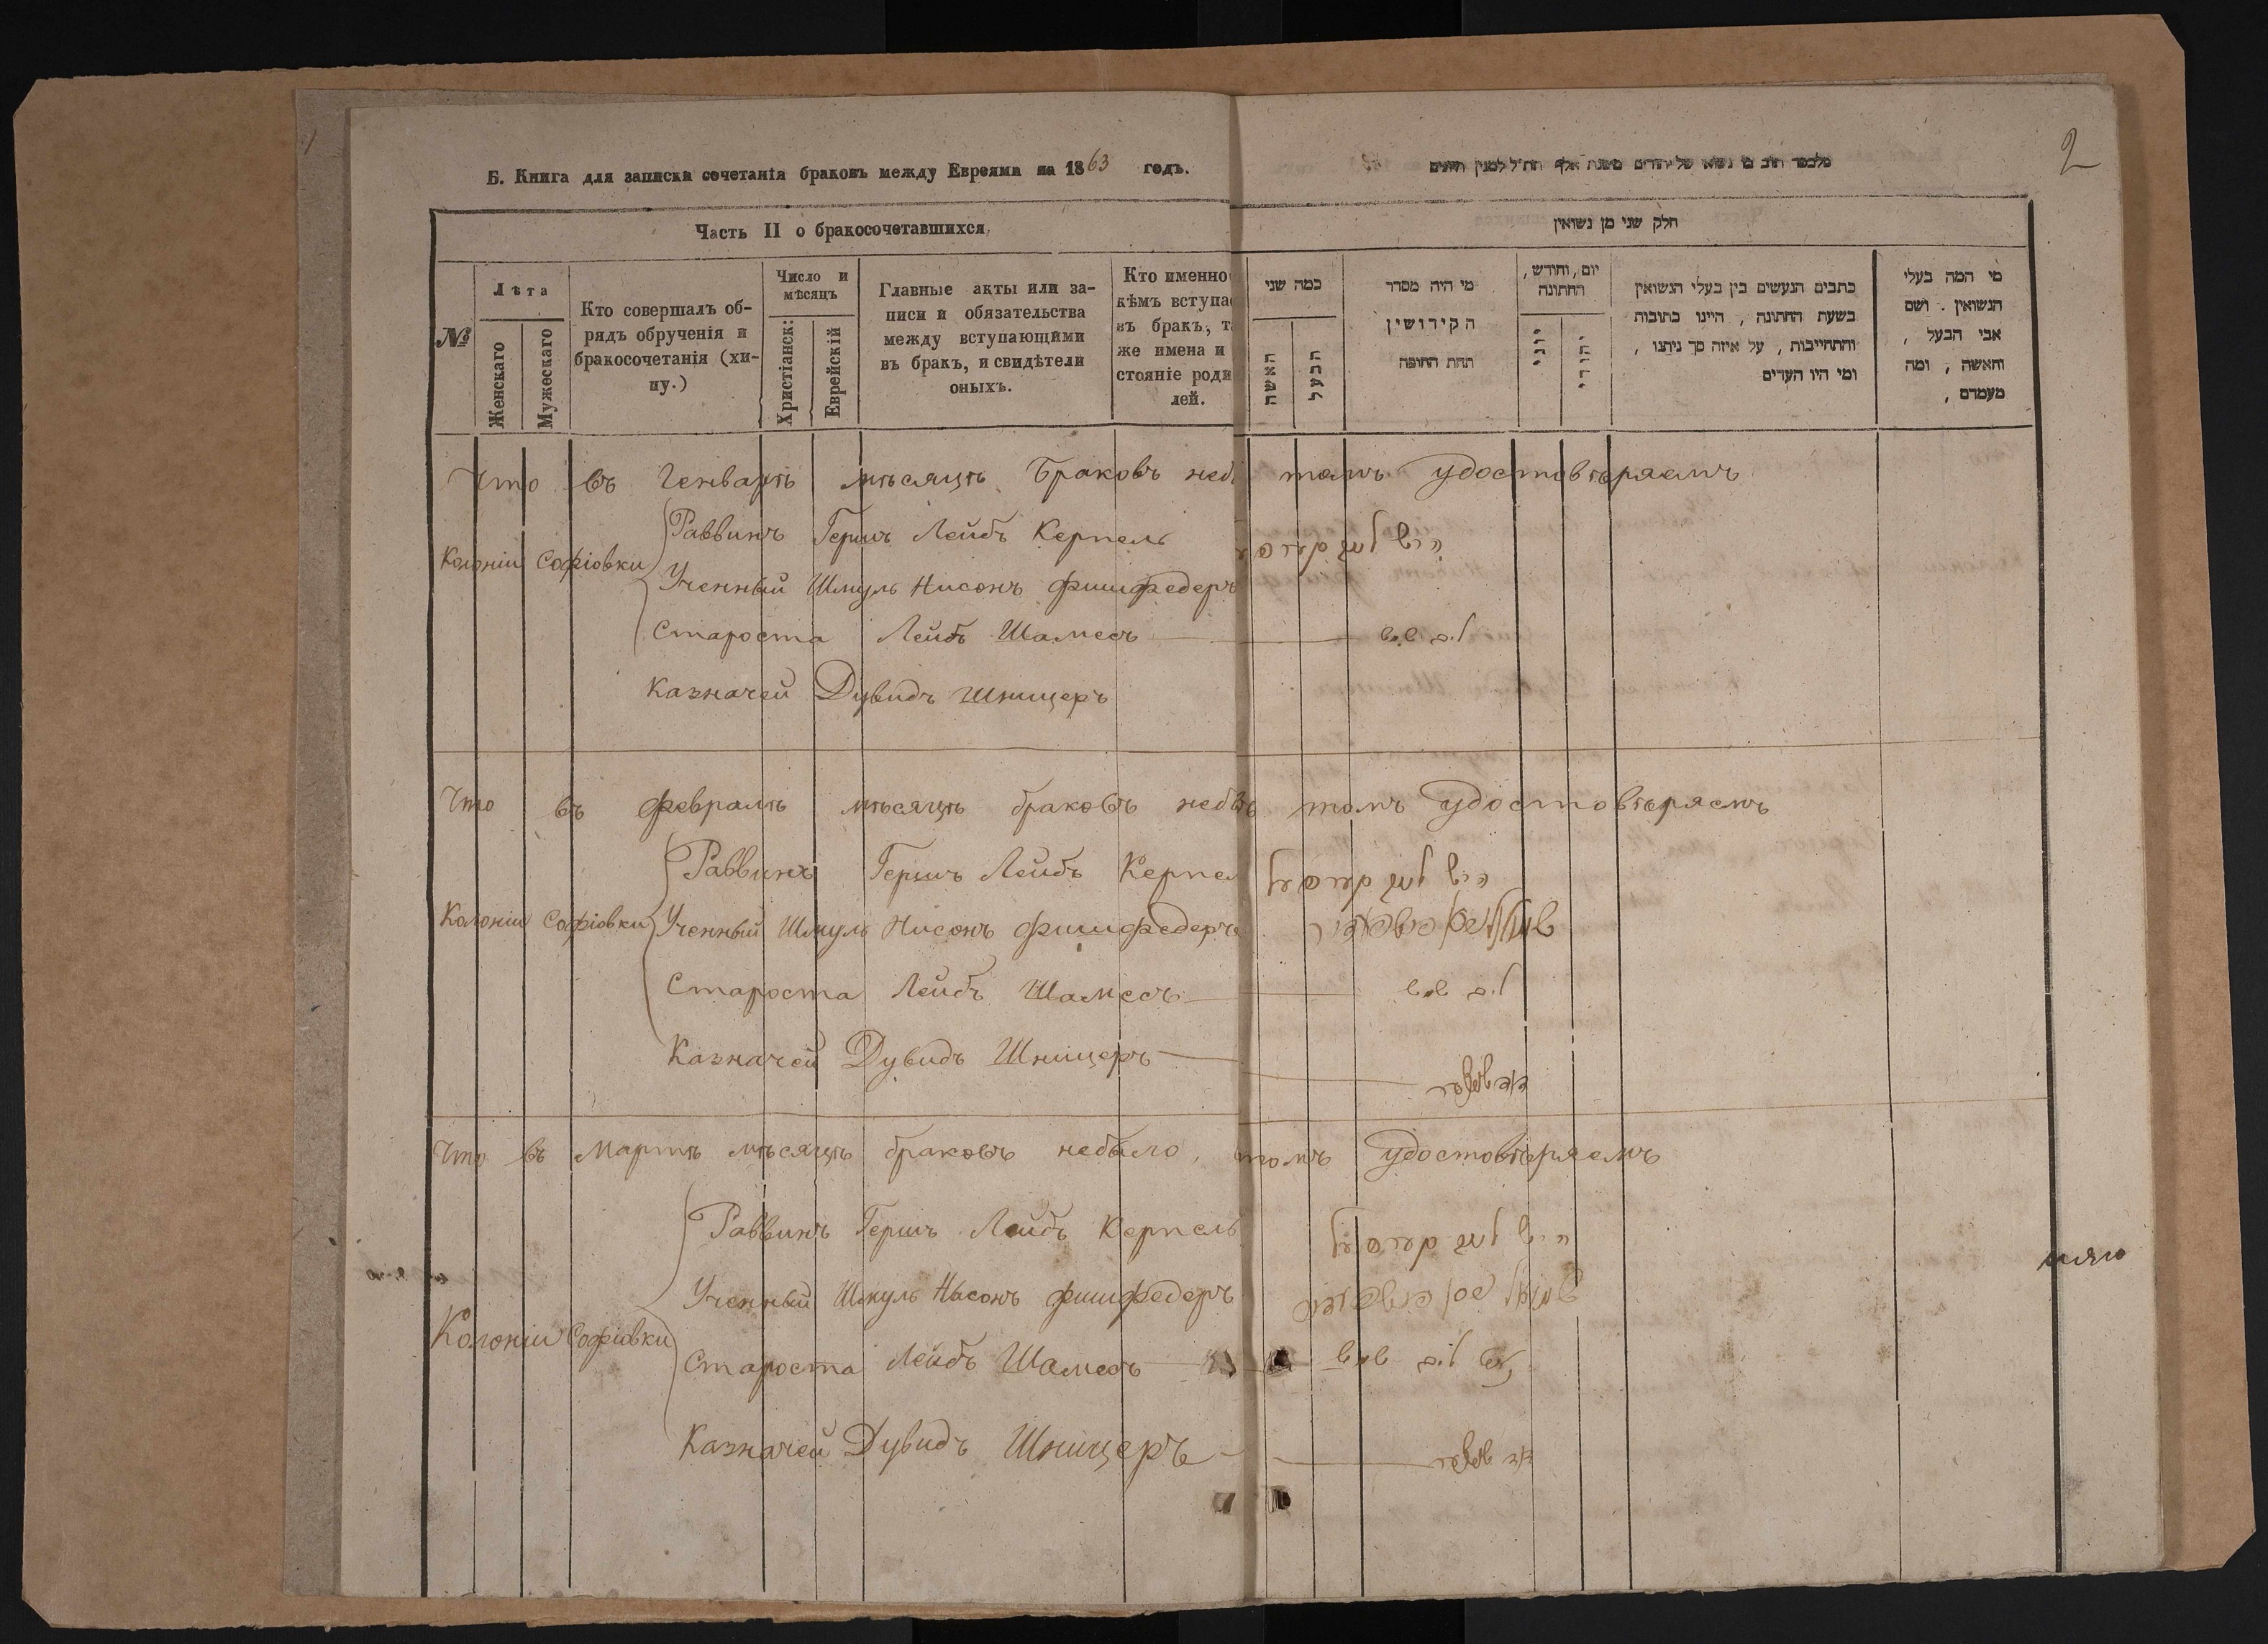 2
Б. Книга для записки сочетанія браковъ между Евреями на 1863 годъ.
Часть II о бракосочетавшихся
חלק שני מן נשואין
№
Лѣта
Женскаго
Мужескаго
Кто совершалъ об-
рядъ обрученія и
бракосочетанія (хи-
пу.)
Число и
мѣсяцъ
Христіанск:
Еврейскій
Главные акты или за-
писи и обязательства
между вступающими
въ бракъ, и свидѣтели
оныхъ.
Кто именно
кѣмъ вступа
въ бракъ, т
же имена и
стояніе роди
лей.
כמה שני
האשה
הבעל
מי היה מסדר
הקידושין
תחת החופה
יום, וחודש,
החתונה
יוני
יהודי
כתבים הנעשים בין בעלי הנשואין
בשעת החתונה, היינו כתובות
והתחייבות, על איזה סך ניתנו,
ומי היו העדים
מי המה בעלי
הנשואין. ושם
אבי הבעל,
והאשה, ומה
מעמדם,
Что въ Генварѣ мѣсяцѣ Браковъ неб томъ удостовѣряемъ
Раввинъ Гершъ Лейбъ Керпель
Колоніи Софіовки
Ученный Шмуль Нисонъ Фишфедеръ
Староста Лейбъ Шамесъ
Казначей Дувидъ Шницеръ
Что въ Февралѣ мѣсяцѣ браковъ небы томъ удостовѣряемъ
Раввинъ Гершъ Лейбъ Керпел
Колоніи Софіовки Ученный Шмуль Нисонъ Фишфедеръ
Староста Лейбъ Шамесъ
Казначей Дувидъ Шницеръ
Что въ Мартѣ мѣсяцѣ браковъ небыло, томъ удостовѣряемъ
Раввинъ Гершъ Лейбъ Керпель
Ученный Шмуль Нисонъ Фишфедеръ
Колоніи Софіовки
Староста Лейбъ Шамесъ
Казначей Дувидъ Шницеръ